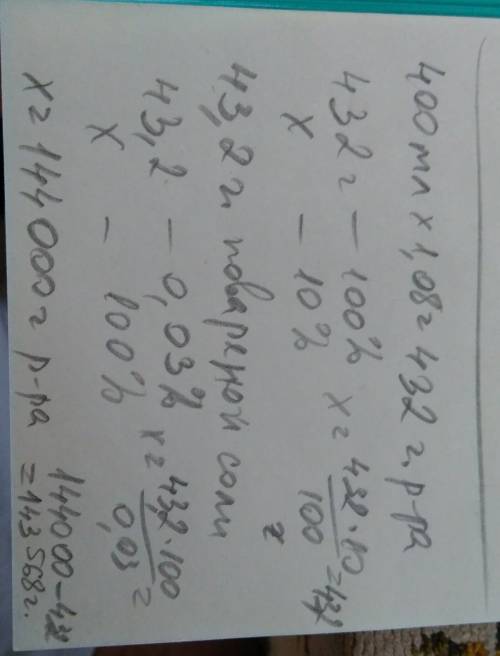 400мл х 1,08 = 432 г. р-ра
432 г — 100%
х — 10% х = 432·10/100 = 43,2
43,2 г поваренной соли
43,2 — 0,03%
х — 100% х = 43,2·100/0,03 =
х = 144000 г р-ра 144000 - 432
= 143568 г.